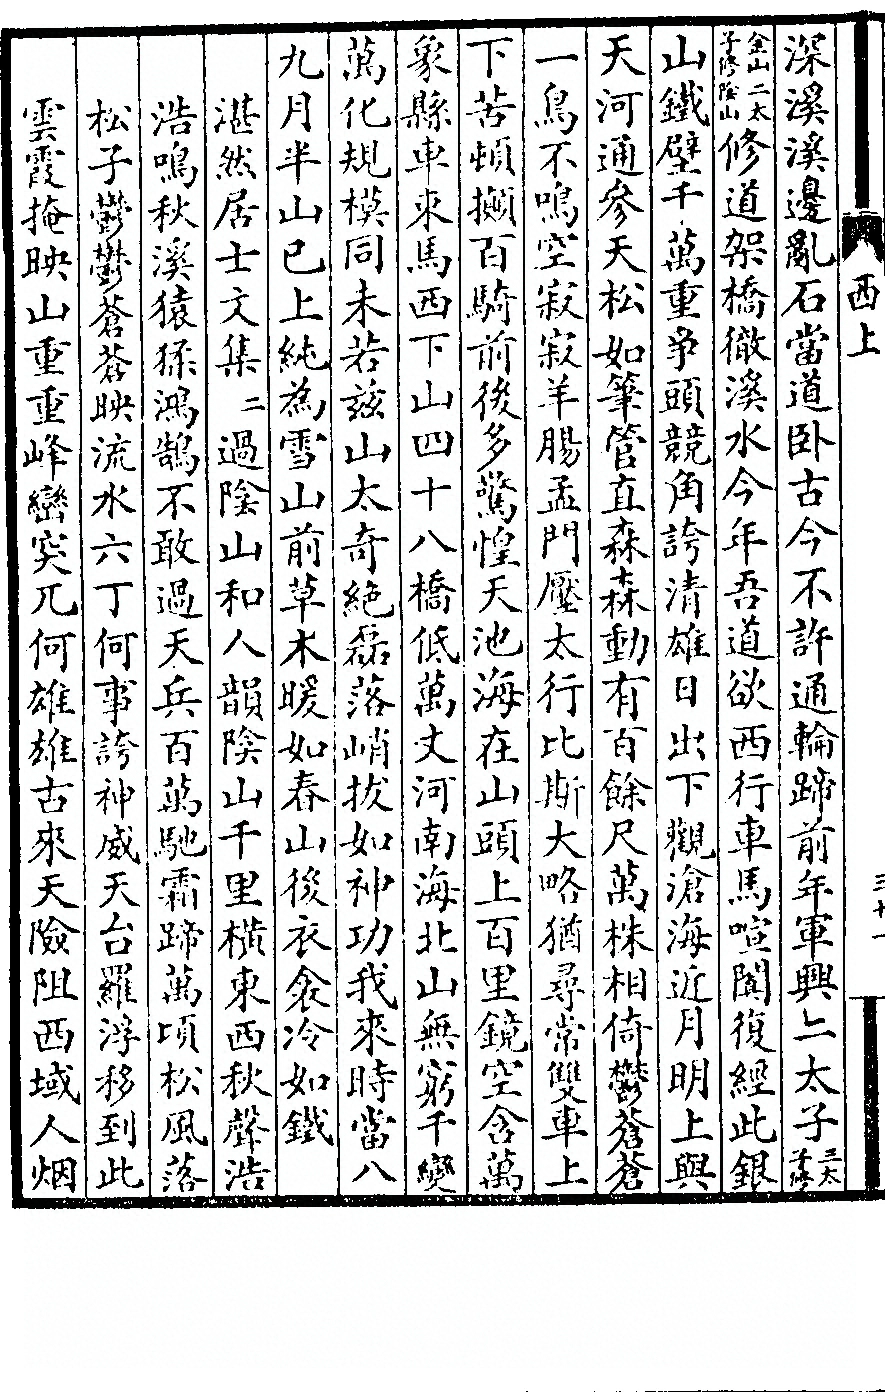 西上
三十一
深溪溪邊亂石當道卧古今不許通輪蹄前年軍興二太子三太子修
金山二太子修陰山修道架橋徹溪水今年吾道欲西行車馬喧闐復經此銀
山鐵壁千萬重爭頭競角誇清雄日出下觀滄海近月明上與
天河通參天松如筆管直森森動有百餘尺萬株相倚鬱蒼蒼
一鳥不鳴空寂寂羊腸孟門壓太行比斯大略猶尋常雙車上
下苦頓攧百騎前後多驚惶天池海在山頭上百里鏡空含萬
象縣車束馬西下山四十八橋低萬丈河南海北山無窮千變
萬化規模同未若兹山太奇絶磊落峭拔如神功我來時當八
九月半山已上純為雪山前草木暖如春山後衣衾冷如鐵
湛然居士文集二過陰山和人韻陰山千里橫東西秋聲浩
浩鳴秋溪猿猱鴻鵠不敢過天兵百萬馳霜蹄萬頃松風落
松子鬱鬱蒼蒼映流水六丁何事誇神威天台羅浮移到此
雲霞掩映山重重峰巒突兀何雄雄古來天險阻西域人烟